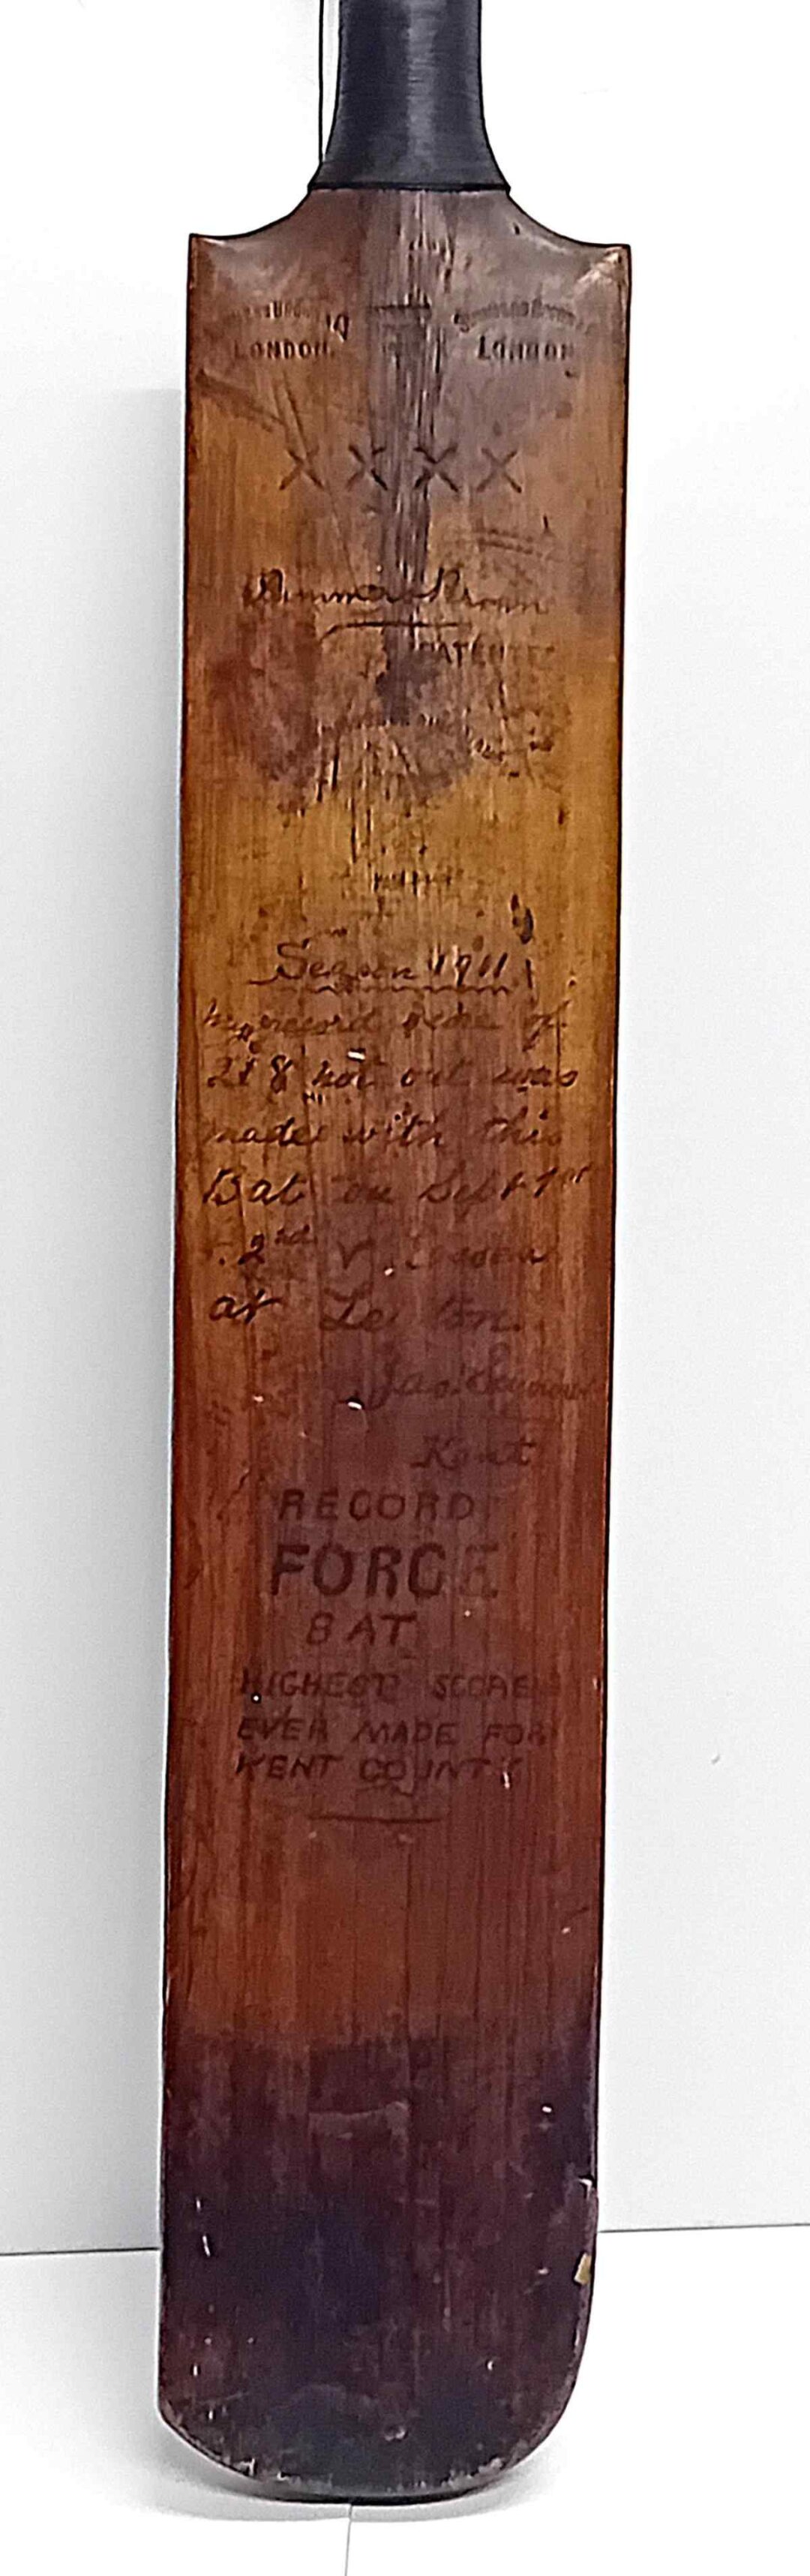 LONDON. LONDON
X X X X
PATENTEE
Season 1911
my record score of
218 not out was
made with this
Bat on Sept 1st
2nd V. Essex
at Le ton.
Jas. Seymour
Kent
RECORD
FORCE
BAT
HIGHEST SCORE
EVER MADE FOR
KENT COUNTY